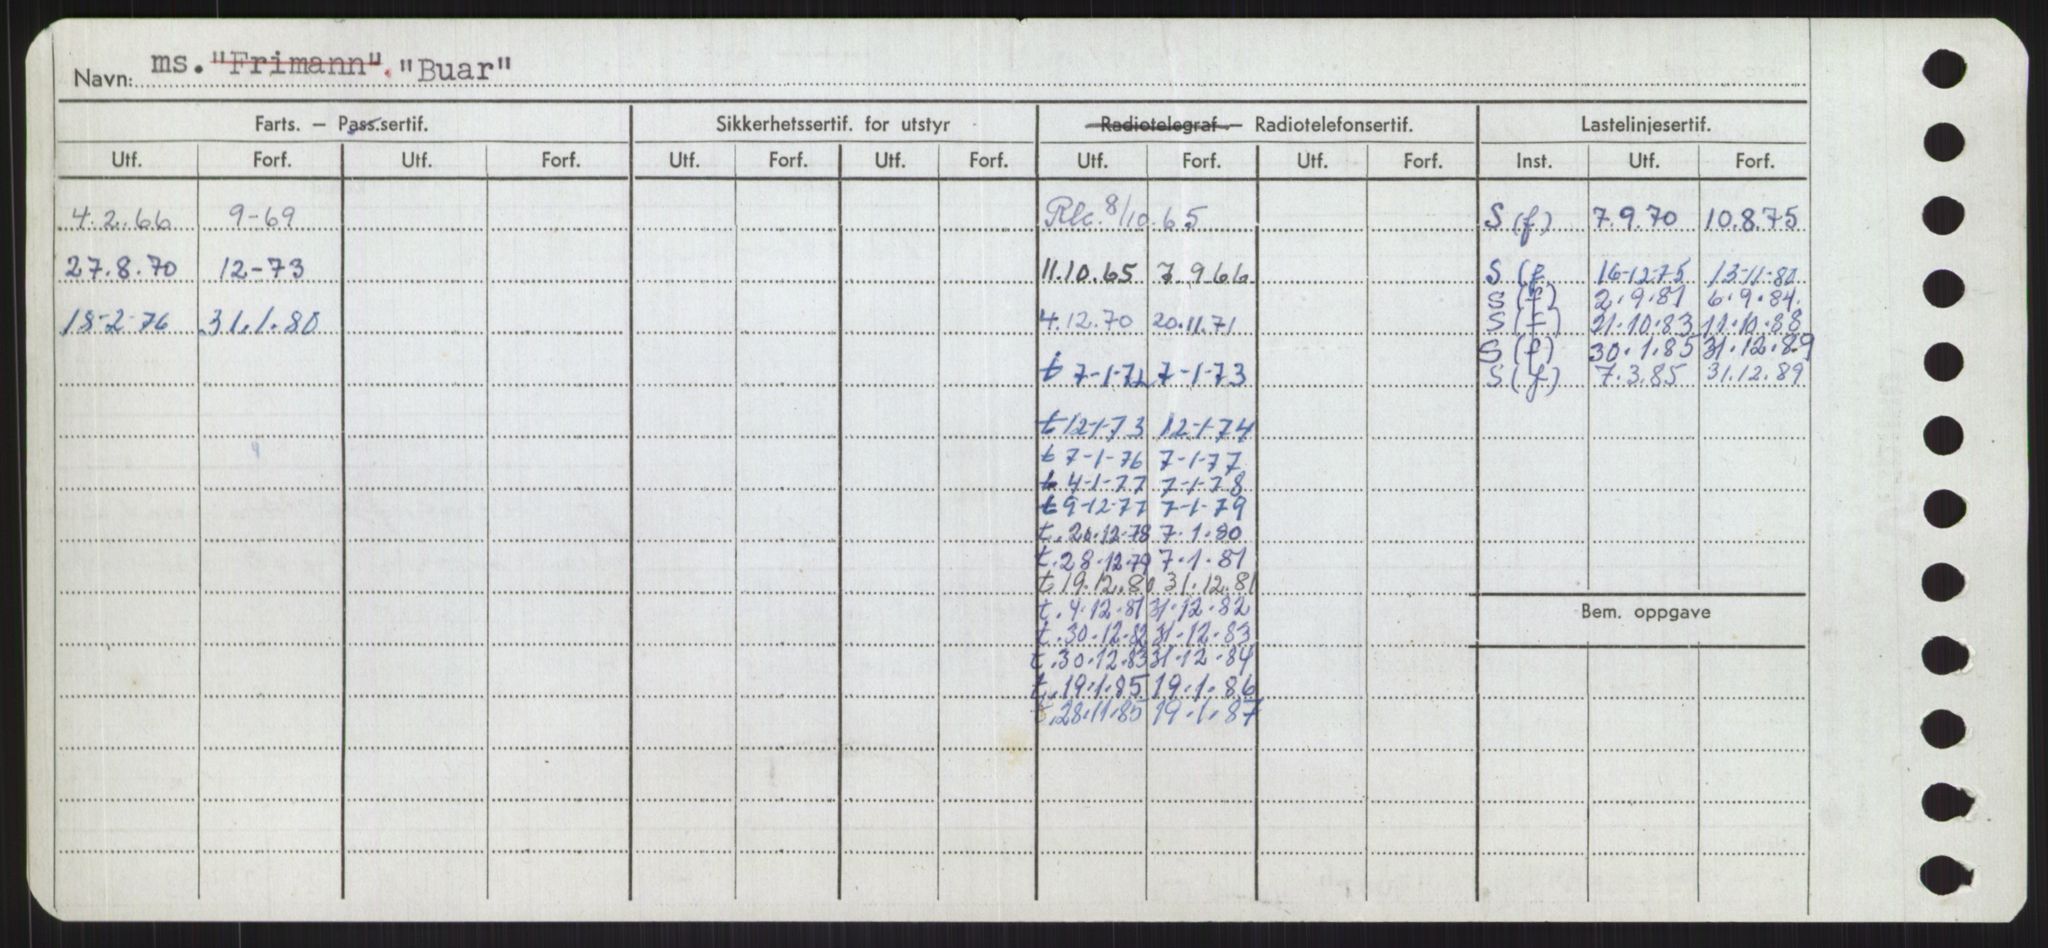 Navn: ms. "Frimann". "Buar"
Farts. – Pass.sertif. Sikkerhetssertif. for utstyr Radiotelegraf – Radiotelefonsertif. Lastelinjesertif.
Utf. Forf. Utf. Forf. Utf. Forf. Utf. Forf. Utf. Forf. Utf. Forf. Inst. Utf. Forf.
4.2.66 9-69 8/10.65 S (f) 7.9.70 10.8.75
27.8.70 12-73 11.10.65 7.9.66 S (f 16-12-75 13-11-80
S (f) 2.9.81 6.9.84.
18-2-76 31.1.80 4.12.70 20.11.71 S (f) 21.10.83 11.10.88
S (f) 30.1.85 31.12.89
t 7-1-72 7-1-73 S (f) 7.3.85 31.12.89
t 12-1-73 12-1-74
t 7-1-76 7-1-77
t 4-1-77 7-1-78
t 9-12-77 7-1-79
t. 20.12.78 7.1.80
t. 28.12.79 7.1.81
t 19.12.80 31.12.81
t. 4.12.81 31.12.82
t. 30.12.82 31.12.83
t. 30.12.83 31.12.84
t. 19.1.85 19.1.86
t. 28.11.85 19.1.87
Bem. oppgave